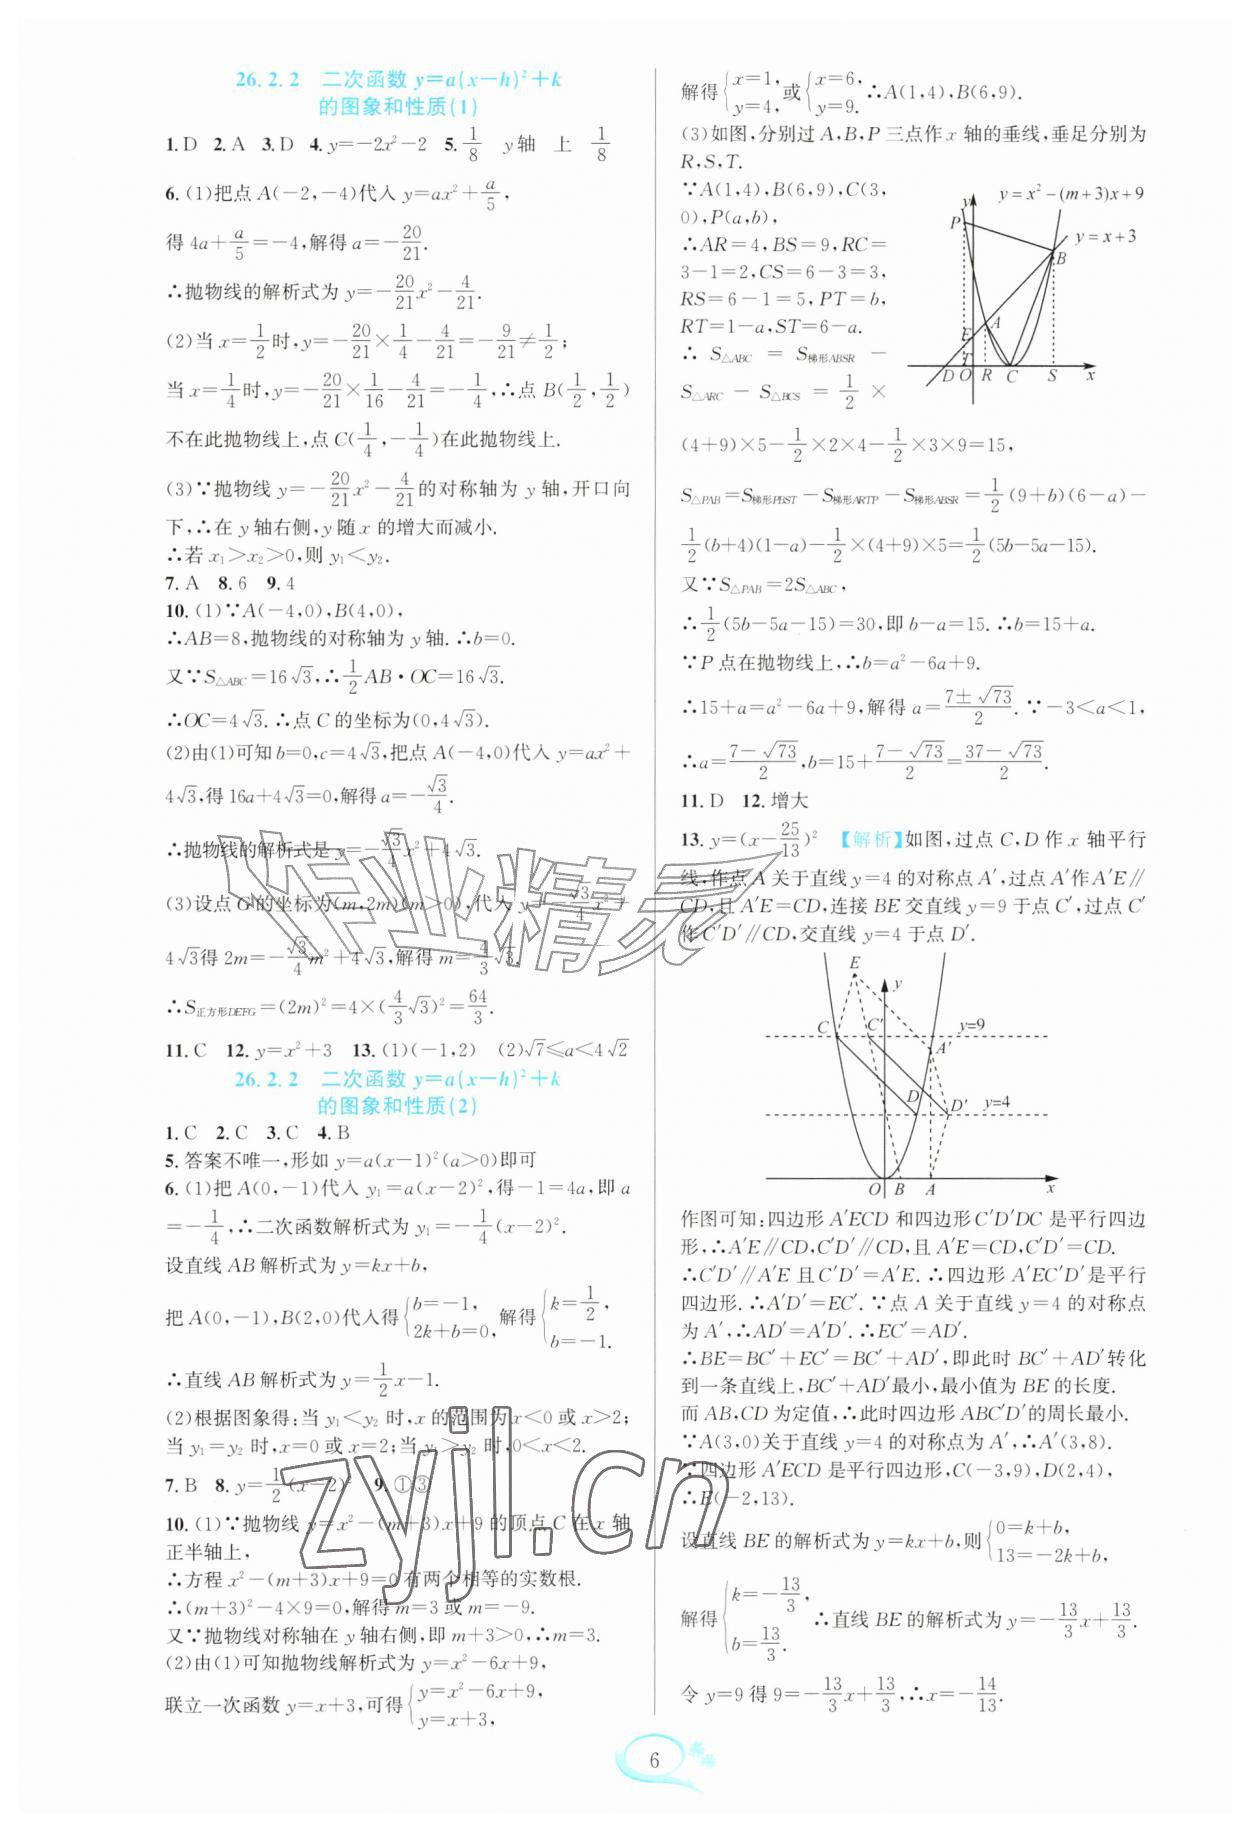 26.2.2 二次函数 y=a(x-h)²+k
的图象和性质(1)
1.D 2.A 3.D 4.y=-2x²-2 5.1/8 y轴 上 1/8
6.(1)把点A(-2,-4)代入y=ax²+a/5,
得4a+a/5=-4,解得a=-20/21.
∴抛物线的解析式为y=-20/21x²-4/21.
(2)当x=1/2时,y=-20/21×1/4-4/21=-9/21≠1/2;
当x=1/4时,y=-20/21×1/16-4/21=-1/4,∴点B(1/2,1/2)
不在此抛物线上,点C(1/4,-1/4)在此抛物线上.
(3)∵抛物线y=-20/21x²-4/21的对称轴为y轴,开口向
下,∴在y轴右侧,y随x的增大而减小.
∴若x₁>x₂>0,则y₁<y₂.
7.A 8.6 9.4
10.(1)∵A(-4,0),B(4,0),
∴AB=8,抛物线的对称轴为y轴.∴b=0.
又∵S△ABC=16√3,∴1/2AB·OC=16√3.
∴OC=4√3.∴点C的坐标为(0,4√3).
(2)由(1)可知b=0,c=4√3,把点A(-4,0)代入y=ax²+
4√3,得16a+4√3=0,解得a=-√3/4.
∴抛物线的解析式是y=-√3/4x²+4√3.
(3)设点G的坐标为(m,2m)(m>0),代入y=-√3/4x²+
4√3得2m=-√3/4m²+4√3,解得m=4/3√3.
∴S正方形DEFG=(2m)²=4×(4/3√3)²=64/3.
11.C 12.y=x²+3 13.(1)(-1,2) (2)√7≤a<4√2
26.2.2 二次函数 y=a(x-h)²+k
的图象和性质(2)
1.C 2.C 3.C 4.B
5.答案不唯一,形如y=a(x-1)²(a>0)即可
6.(1)把A(0,-1)代入y₁=a(x-2)²,得-1=4a,即a
=-1/4,∴二次函数解析式为y₁=-1/4(x-2)².
设直线AB解析式为y=kx+b,
把A(0,-1),B(2,0)代入得{b=-1, 2k+b=0, 解得{k=1/2, b=-1.
∴直线AB解析式为y=1/2x-1.
(2)根据图象得:当y₁<y₂时,x的范围为x<0或x>2;
当y₁=y₂时,x=0或x=2;当y₁>y₂时,0<x<2.
7.B 8.y=1/2(x-2)² 9.①③
10.(1)∵抛物线y=x²-(m+3)x+9的顶点C在x轴
正半轴上,
∴方程x²-(m+3)x+9=0有两个相等的实数根.
∴(m+3)²-4×9=0,解得m=3或m=-9.
又∵抛物线对称轴在y轴右侧,即m+3>0,∴m=3.
(2)由(1)可知抛物线解析式为y=x²-6x+9,
联立一次函数y=x+3,可得{y=x²-6x+9, y=x+3,
解得{x=1, y=4, 或{x=6, y=9. ∴A(1,4),B(6,9).
(3)如图,分别过A,B,P三点作x轴的垂线,垂足分别为
R,S,T.
∵A(1,4),B(6,9),C(3,
0),P(a,b),
∴AR=4,BS=9,RC=
3-1=2,CS=6-3=3,
RS=6-1=5,PT=b,
RT=1-a,ST=6-a.
∴ S△ABC = S梯形ABSR -
S△ARC - S△BCS = 1/2 ×
y y=x²-(m+3)x+9
P
y=x+3
B
A
E
T
D O R C S x
(4+9)×5-1/2×2×4-1/2×3×9=15,
S△PAB=S梯形PBST-S梯形ARTP-S梯形ABSR=1/2(9+b)(6-a)-
1/2(b+4)(1-a)-1/2×(4+9)×5=1/2(5b-5a-15).
又∵S△PAB=2S△ABC,
∴1/2(5b-5a-15)=30,即b-a=15.∴b=15+a.
∵P点在抛物线上,∴b=a²-6a+9.
∴15+a=a²-6a+9,解得a=(7±√73)/2.∵-3<a<1,
∴a=(7-√73)/2,b=15+(7-√73)/2=(37-√73)/2.
11.D 12.增大
13.y=(x-25/13)² 【解析】如图,过点C,D作x轴平行
线,作点A关于直线y=4的对称点A′,过点A′作A′E∥
CD,且A′E=CD,连接BE交直线y=9于点C′,过点C′
作C′D′∥CD,交直线y=4于点D′.
E y
C C′ y=9
A′
D D′ y=4
O B A x
作图可知:四边形A′ECD和四边形C′D′DC是平行四边
形,∴A′E∥CD,C′D′∥CD,且A′E=CD,C′D′=CD.
∴C′D′∥A′E且C′D′=A′E.∴四边形A′EC′D′是平行
四边形.∴A′D′=EC′.∵点A关于直线y=4的对称点
为A′,∴AD′=A′D′.∴EC′=AD′.
∴BE=BC′+EC′=BC′+AD′,即此时BC′+AD′转化
到一条直线上,BC′+AD′最小,最小值为BE的长度.
而AB,CD为定值,∴此时四边形ABC′D′的周长最小.
∵A(3,0)关于直线y=4的对称点为A′,∴A′(3,8).
∵四边形A′ECD是平行四边形,C(-3,9),D(2,4),
∴E(-2,13).
设直线BE的解析式为y=kx+b,则{0=k+b, 13=-2k+b,
解得{k=-13/3, b=13/3. ∴直线BE的解析式为y=-13/3x+13/3.
令y=9得9=-13/3x+13/3,∴x=-14/13.
6
作业精灵
zyjl.cn